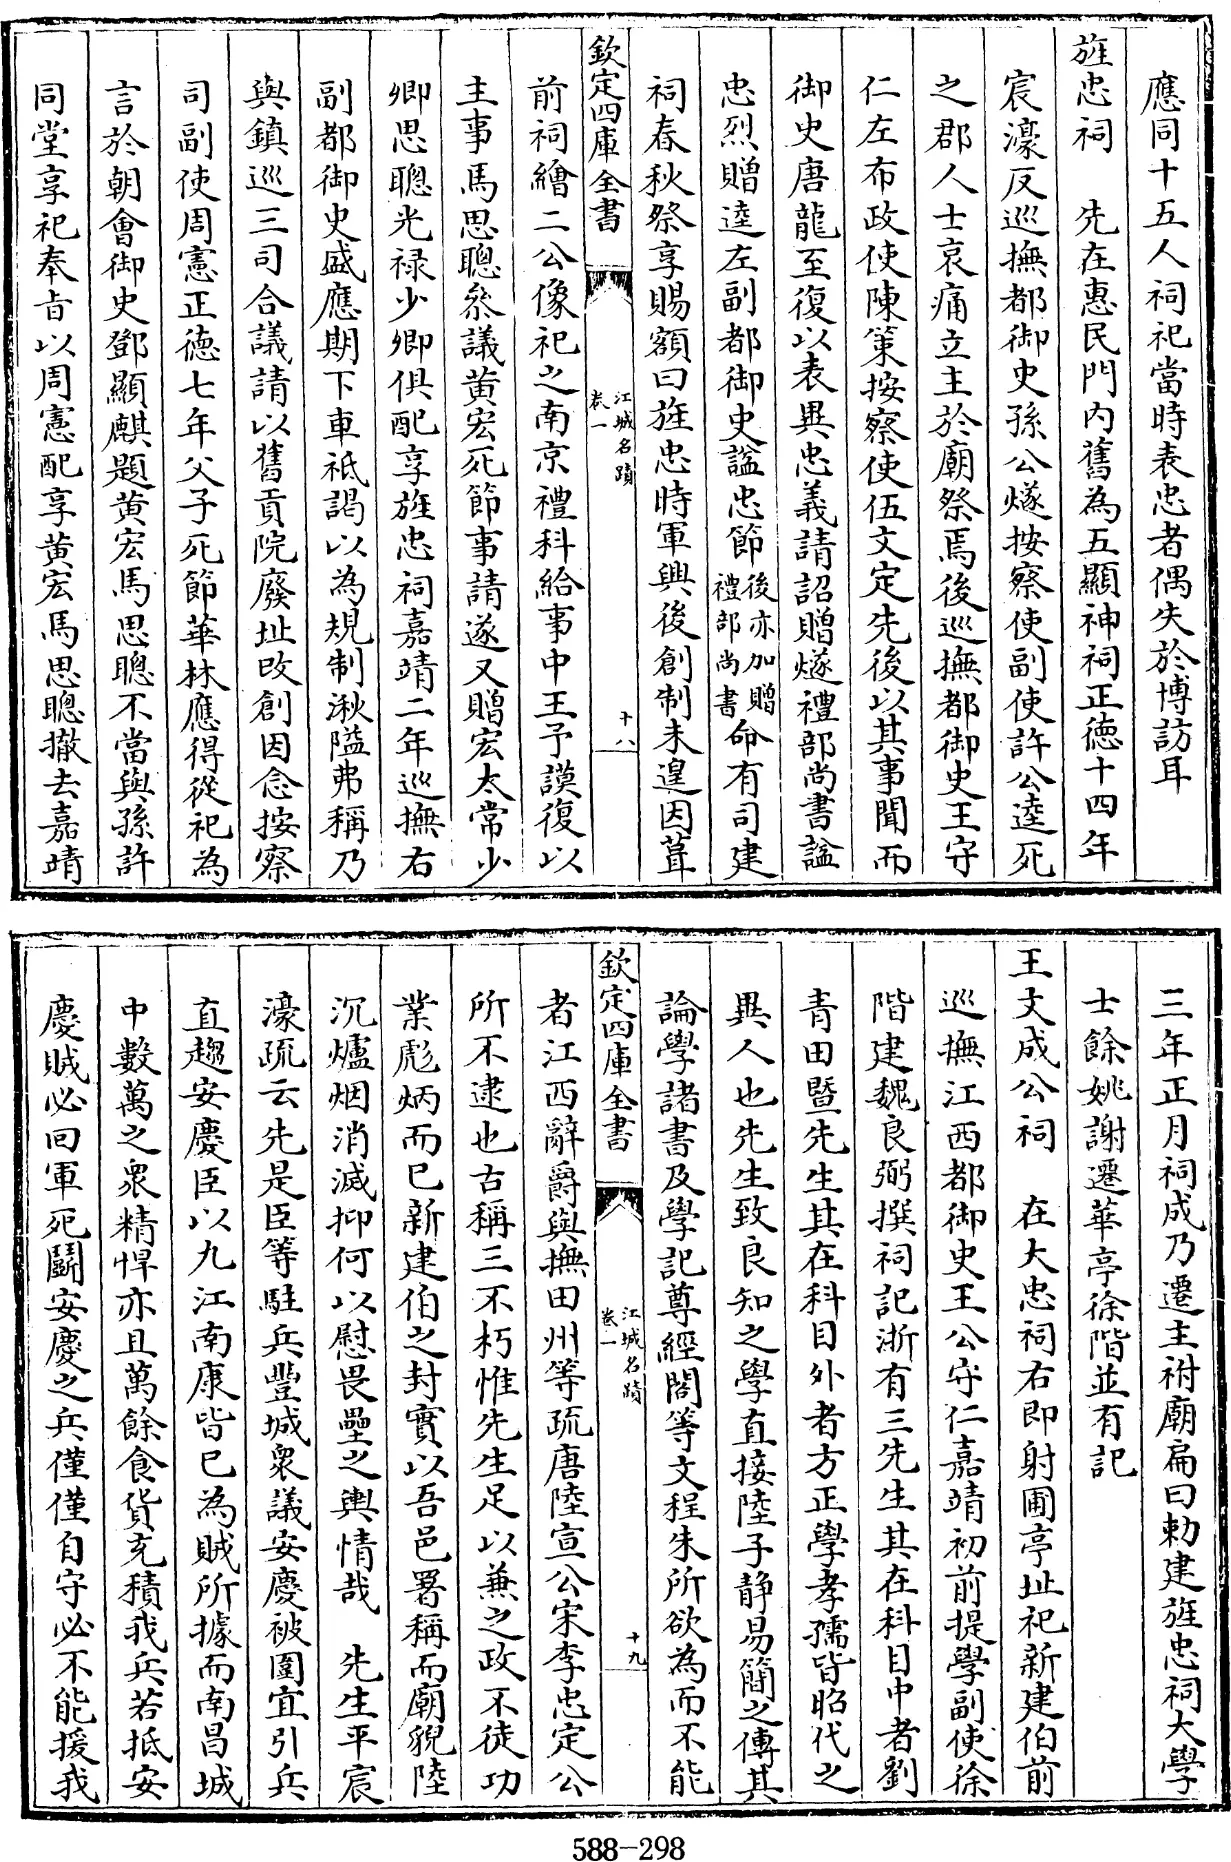 應同十五人祠祀當時表忠者偶失於博訪耳
旌忠祠　先在惠民門內舊為五顯神祠正德十四年
宸濠反巡撫都御史孫公燧按察使副使許公逵死
之郡人士哀痛立主於廟祭焉後巡撫都御史王守
仁左布政使陳策按察使伍文定先後以其事聞而
御史唐龍至復以表異忠義請詔贈燧禮部尚書諡
忠烈贈逵左副都御史諡忠節後亦加贈禮部尚書命有司建
祠春秋祭享賜額曰旌忠時軍興後創制未遑因葺
欽定四庫全書　江城名蹟　卷一　十八
前祠繪二公像祀之南京禮科給事中王予謨復以
主事馬思聰叅議黄宏死節事請遂又贈宏太常少
卿思聰光禄少卿俱配享旌忠祠嘉靖二年巡撫右
副都御史盛應期下車祗謁以為規制湫隘弗稱乃
與鎮巡三司合議請以舊貢院廢址改創因念按察
司副使周憲正德七年父子死節華林應得從祀為
言於朝會御史鄧顯麒題黄宏馬思聰不當與孫許
同堂享祀奉旨以周憲配享黄宏馬思聰撤去嘉靖
三年正月祠成乃遷主祔廟扁曰勅建旌忠祠大學
士餘姚謝遷華亭徐階並有記
王文成公祠　在大忠祠右即射圃亭址祀新建伯前
巡撫江西都御史王公守仁嘉靖初前提學副使徐
階建魏良弼撰祠記浙有三先生其在科目中者劉
青田暨先生其在科目外者方正學孝孺皆昭代之
異人也先生致良知之學直接陸子静易簡之傳其
論學諸書及學記尊經閣等文程朱所欲為而不能
欽定四庫全書　江城名蹟　卷一　十九
者江西辭爵與撫田州等疏唐陸宣公宋李忠定公
所不逮也古稱三不朽惟先生足以兼之政不徒功
業彪炳而已新建伯之封實以吾邑署稱而廟貌陸
沉爐烟消滅抑何以慰畏壘之輿情哉　先生平宸
濠疏云先是臣等駐兵豐城衆議安慶被圍宜引兵
直趨安慶臣以九江南康皆已為賊所據而南昌城
中數萬之衆精悍亦且萬餘食貨充積我兵若抵安
慶賊必回軍死鬬安慶之兵僅僅自守必不能援我
588-298